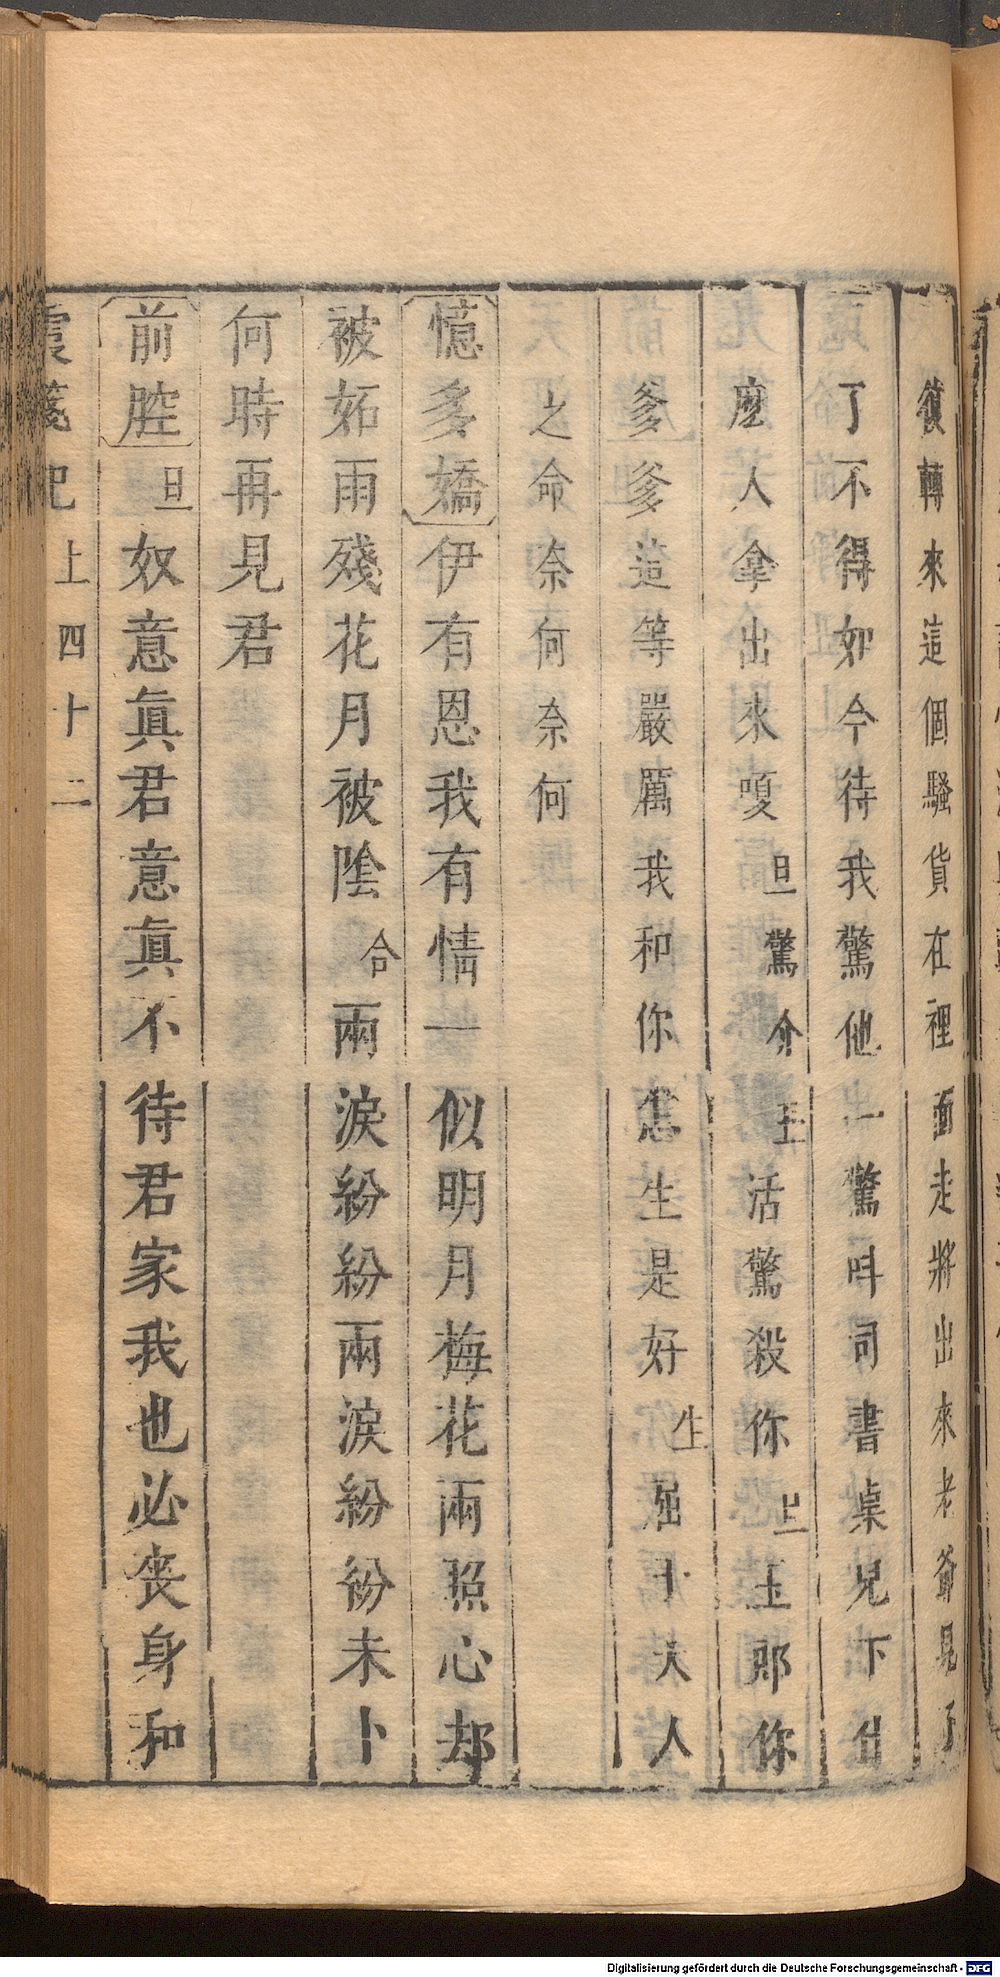 復轉來這個騷貨在裡面走將出來老爺見了
了不得如今待我驚他一驚叫司書桌兒下什
麼人拿出來嗄旦驚介生活驚殺你旦玉郎你
爹爹這等嚴厲我和你怎生是好生屈十大人
之命奈何奈何
憶多嬌伊有恩我有情一似明月梅花兩照心却
被妬雨殘花月被陰合兩淚紛紛兩淚紛紛未卜
何時再見君
前腔旦奴意眞君意眞不待君家我也必喪身和
霞箋記 上 四十二
Digitalisierung gefördert durch die Deutsche Forschungsgemeinschaft - DFG